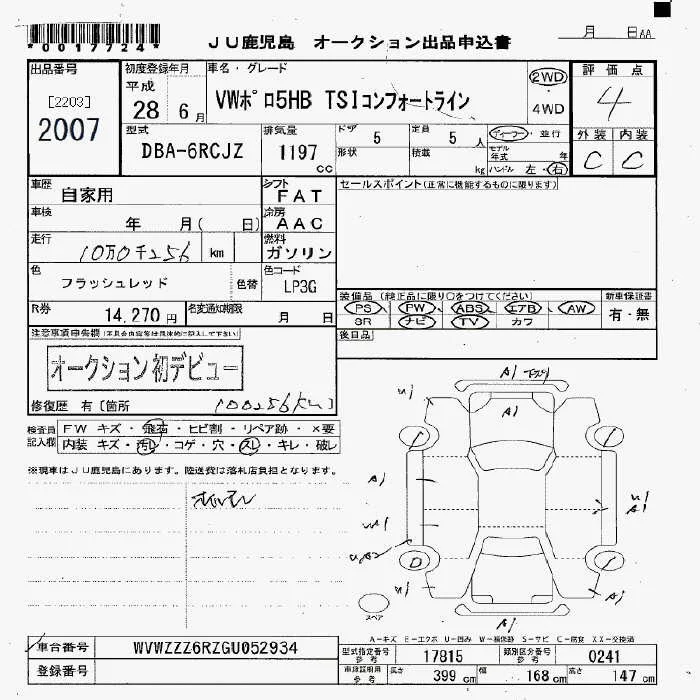 *0017724*
JU鹿児島 オークション出品申込書
月 日AA
出品番号
[2203]
2007
初度登録年月
平成
28 6月
車名・グレード
VWポロ5HB TSIコンフォートライン
2WD
・
4WD
評価点
4
外装 内装
C C
型式
DBA-6RCJZ
排気量
1197
cc
ドア 5
定員 5 人
形状
積載 kg
ディーラー・並行
モデル年式 年
ハンドル 左・右
車歴 自家用
シフト FAT
セールスポイント(正常に機能するものに限ります)
車検 年 月( 日)
冷房 AAC
走行 10万0千256 km
燃料 ガソリン
色 フラッシュレッド
色替
色コード LP3G
R券 14,270円
名変通知期限 月 日
装備品(純正品に限り○をつけてください)
PS PW ABS エアB AW
SR ナビ TV カワ
新車保証書
有・無
後日品
注意事項申告欄(不具合内容等は具体的に記入して下さい)
オークション初デビュー
修復歴 有〔箇所
100256km〕
検査員記入欄
FW キズ・飛石・ヒビ割・リペア跡・×要
内装 キズ・汚レ・コゲ・穴・スレ・キレ・破レ
※現車はJU鹿児島にあります。陸送費は落札店負担となります。
A1
A1
U1
A1
U1
A1
D
U1
A1
A1
スペア
A-キズ E-エクボ U-凹み W-補修跡 S-サビ C-腐食 XX-交換済
車台番号 WVWZZZ6RZGU052934
登録番号
型式指定番号 参考 17815
類別区分番号 参考 0241
車検証明用 参考
長さ 399 cm
幅 168 cm
高さ 147 cm